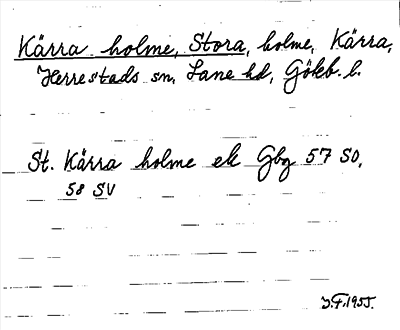 Kärra holme, Stora, holme, Kärra,
Herrestads sn, Lane hd, Göteb. l.
St. Kärra holme ek Gbg 57 SO,
58 SV
J.F. 1955.